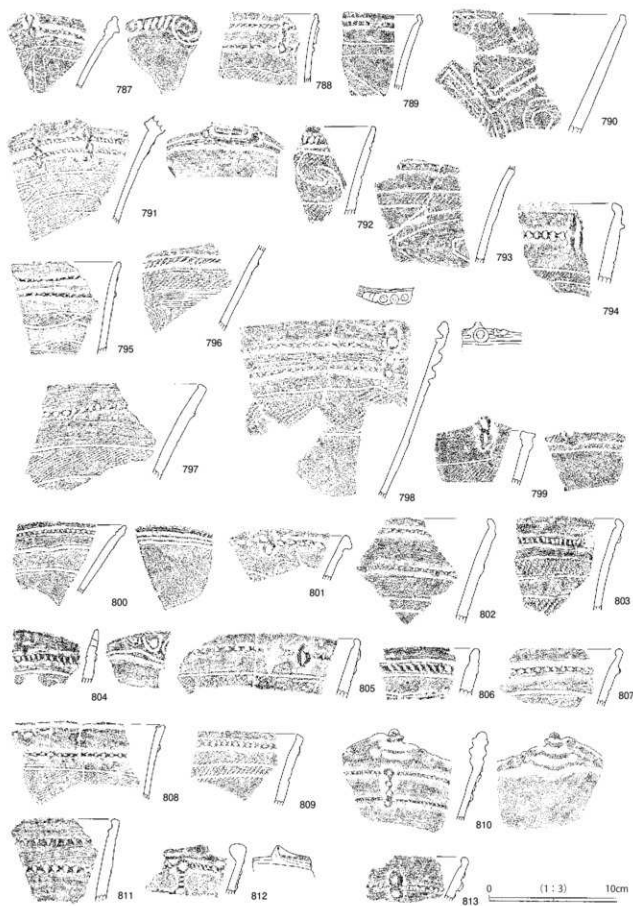 787 788 789 790
791 792 793 794
795 796 797 798 799
800 801 802 803
804 805 806 807
808 809 810
811 812 813
0 (1：3) 10cm